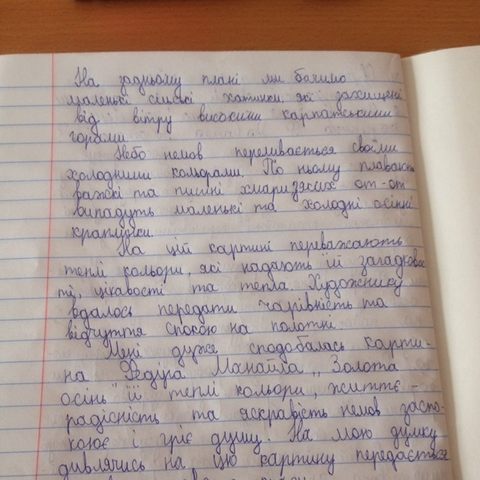 На задньому плані ми бачимо
маленькі сільскі хатинки, які захищені
від вітру високими карпатськими
горами.
Небо немов переливається своїми
холодними кольорами. По ньому плавають
важкі та пишні хмари з яких от-от
випадуть маленькі та холодні осінні
краплинки.
На цій картині переважають
теплі кольори, які надають їй загадковос
ті, цікавості та тепла. Художнику
вдалось передати чарівність та
відчуття спокою на полотні.
Мені дуже сподобалась карти-
на Федіра Манайла „Золота
осінь" її теплі кольори, життє-
радісність та яскравість немов заспо-
коює і гріє душу. На мою думку
дивлячись на цю картину передається